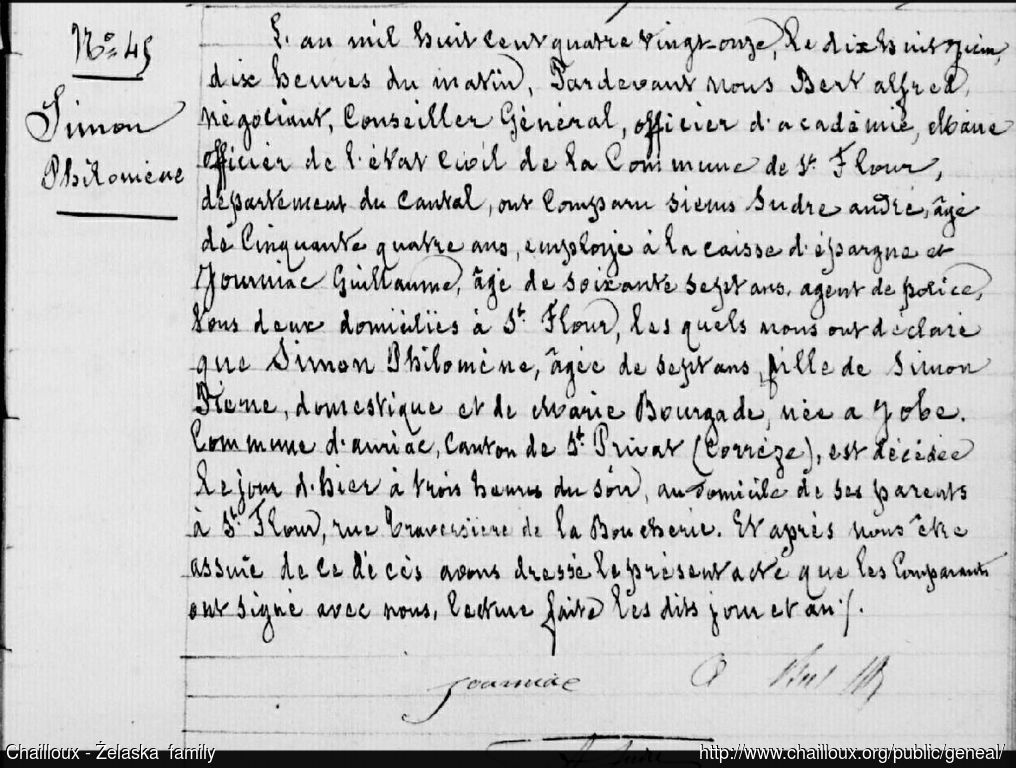 No 45
Simon
Philomène
L'an mil huit cent quatre vingt-onze, le dix huit juin,
dix heures du matin, Pardevant nous Bert alfred,
négociant, Conseiller Général, officier d'académie, Maire
officier de l'état civil de la Commune de St Flour,
département du Cantal, ont Comparu sieurs Sudre andré, âgé
de Cinquante quatre ans, employé à la caisse d'épargne et
Journiac Guillaume, âgé de soixante sept ans, agent de police,
tous deux domiciliés à St Flour, les quels nous ont déclaré
que Simon Philomène, âgée de sept ans, fille de Simon
Pierre, domestique et de Marie Bourgade, née a Jobe.
Commune d'auriac, Canton de St Privat (Corrèze), est décédée
le jour d'hier à trois heures du soir, au domicile de ses parents
à St Flour, rue traversière de la Boucherie. Et après nous être
assuré de ce décès avons dressé le présent acte que les Comparants
ont signé avec nous, lecture faite les dits jour et an ./.
Journiac A Bert
A Sudre
Chailloux - Żelaska family
http://www.chailloux.org/public/geneal/